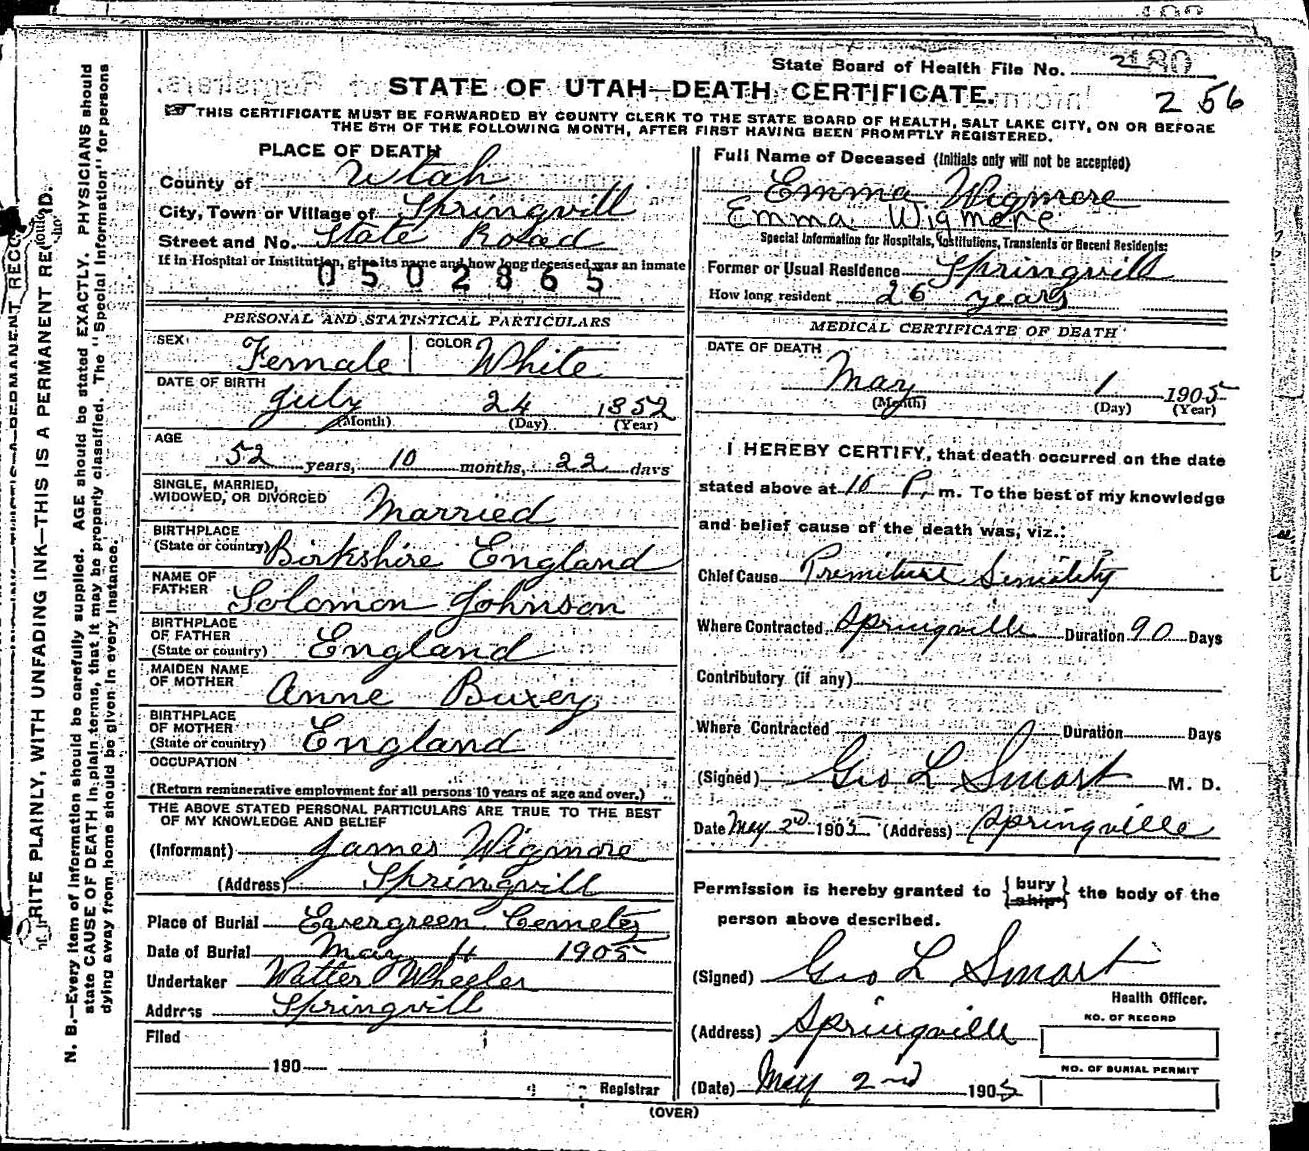 State Board of Health File No.
2 56
STATE OF UTAH—DEATH CERTIFICATE.
THIS CERTIFICATE MUST BE FORWARDED BY COUNTY CLERK TO THE STATE BOARD OF HEALTH, SALT LAKE CITY, ON OR BEFORE
THE 5TH OF THE FOLLOWING MONTH, AFTER FIRST HAVING BEEN PROMPTLY REGISTERED.
PLACE OF DEATH
County of Utah
City, Town or Village of Springvill
Street and No. State Road
If in Hospital or Institution, give its name and how long deceased was an inmate
0502865
PERSONAL AND STATISTICAL PARTICULARS
SEX Female COLOR White
DATE OF BIRTH
July 24 1852
(Month) (Day) (Year)
AGE
52 years, 10 months, 22 days
SINGLE, MARRIED,
WIDOWED, OR DIVORCED Married
BIRTHPLACE
(State or country) Birkshire England
NAME OF
FATHER Solomon Johnson
BIRTHPLACE
OF FATHER
(State or country) England
MAIDEN NAME
OF MOTHER Anne Buxey
BIRTHPLACE
OF MOTHER
(State or country) England
OCCUPATION
(Return remunerative employment for all persons 10 years of age and over.)
THE ABOVE STATED PERSONAL PARTICULARS ARE TRUE TO THE BEST
OF MY KNOWLEDGE AND BELIEF
(Informant) James Wigmore
(Address) Springvill
Place of Burial Evergreen Cemetey
Date of Burial May 4 1905
Undertaker Walter Wheeler
Address Springvill
Filed
190
Registrar
Full Name of Deceased (Initials only will not be accepted)
Emma Wigmore
Emma Wigmore
Special Information for Hospitals, Institutions, Transients or Recent Residents:
Former or Usual Residence Springvill
How long resident 26 years
MEDICAL CERTIFICATE OF DEATH
DATE OF DEATH
May 1 1905
(Month) (Day) (Year)
I HEREBY CERTIFY, that death occurred on the date
stated above at 10 P. m. To the best of my knowledge
and belief cause of the death was, viz.:
Chief Cause Premiture Senility
Where Contracted Springville Duration 90 Days
Contributory (if any)
Where Contracted Duration Days
(Signed) Geo L Smart M. D.
Date May 2d 1905 (Address) Springville
Permission is hereby granted to {bury ship} the body of the
person above described.
(Signed) Geo L Smart
Health Officer.
(Address) Springville
NO. OF RECORD
NO. OF BURIAL PERMIT
(Date) May 2nd 1905
(OVER)
RITE PLAINLY, WITH UNFADING INK—THIS IS A PERMANENT
N. B.—Every item of information should be carefully supplied. AGE should be stated EXACTLY. PHYSICIANS should
state CAUSE OF DEATH in plain terms, that it may be properly classified. The "Special Information" for persons
dying away from home should be given in every instance.